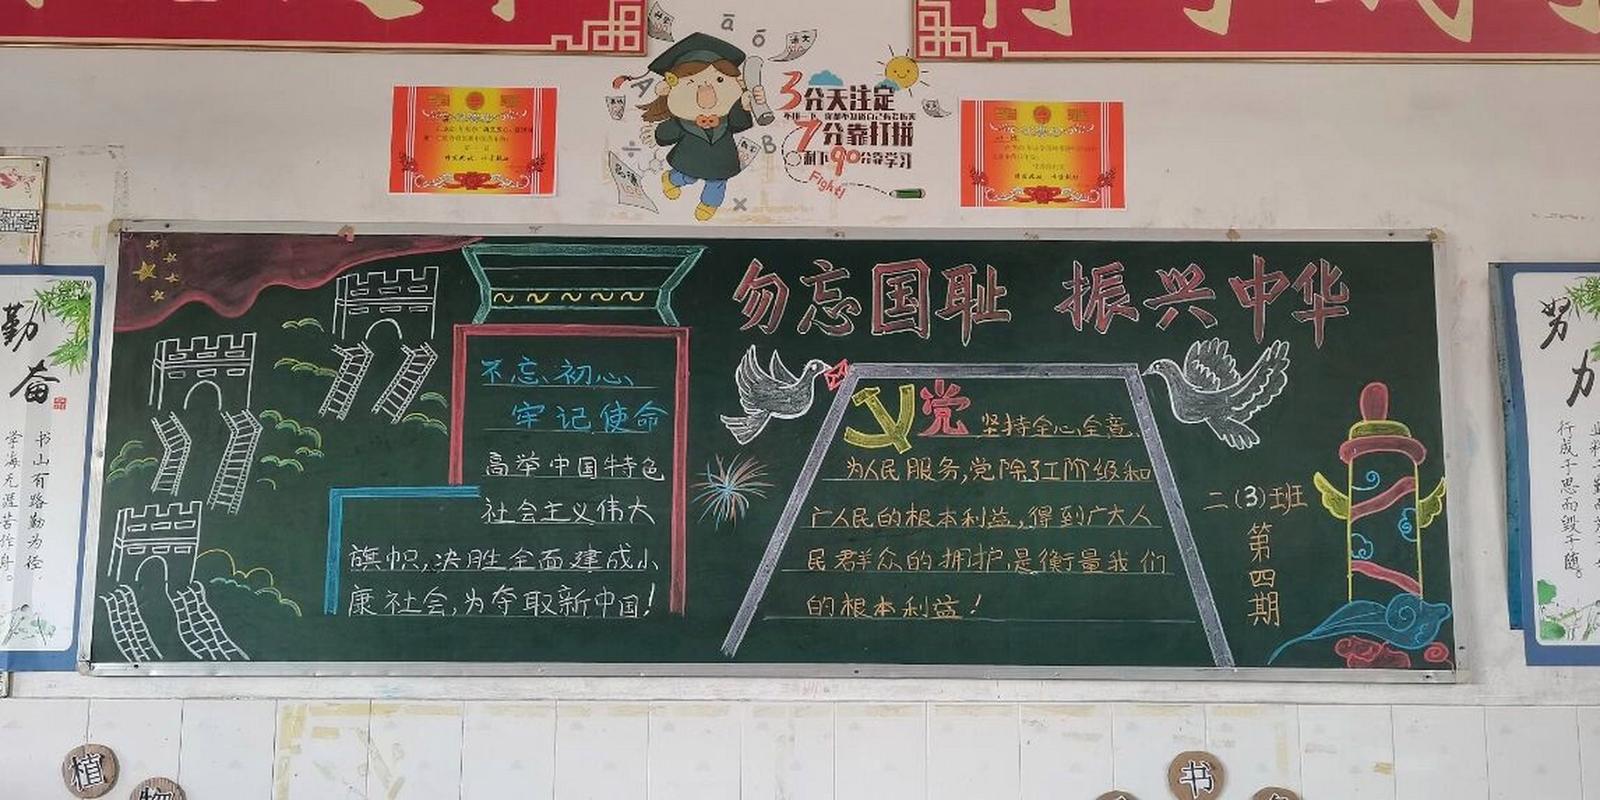 3分天注定
7分靠打拼
剩下90分靠学习
Fight!
勿忘国耻 振兴中华
不忘初心
牢记使命
高举中国特色
社会主义伟大
旗帜,决胜全面建成小
康社会,为夺取新中国!
党 坚持全心全意
为人民服务,党除了工阶级和
广人民的根本利益,得到广大人
民群众的拥护,是衡量我们
的根本利益!
二(3)班
第四期
勤奋
书山有路勤为径,
学海无涯苦作舟。
努力
行成于思而毁于随。
植
物
书